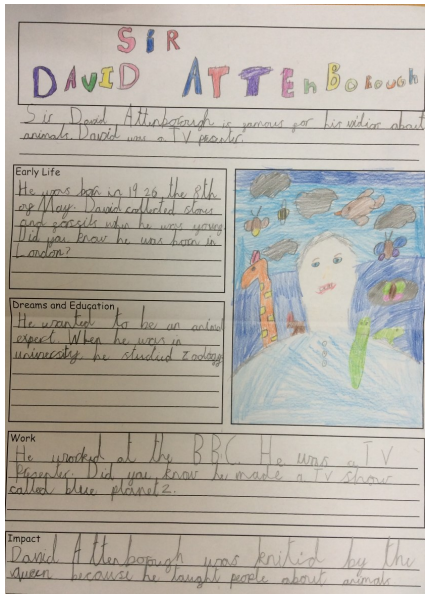 SIR
DAVID ATTENBOROUGH
Sir David Attenborough is famous for his vidios about
animals. David was a TV presnter.
Early Life
He was born in 1926 the 8th
of May. David collected stones
and fossils when he was young.
Did you know he was born in
London?
Dreams and Education
He wanted to be an animal
expert. When he was in
university he studied zoology
Work
He worked at the BBC He was a TV
Presenter. Did you know he made a TV show
called blue planet 2.
Impact
David Attenborough was knitid by the
queen because he taught people about animals